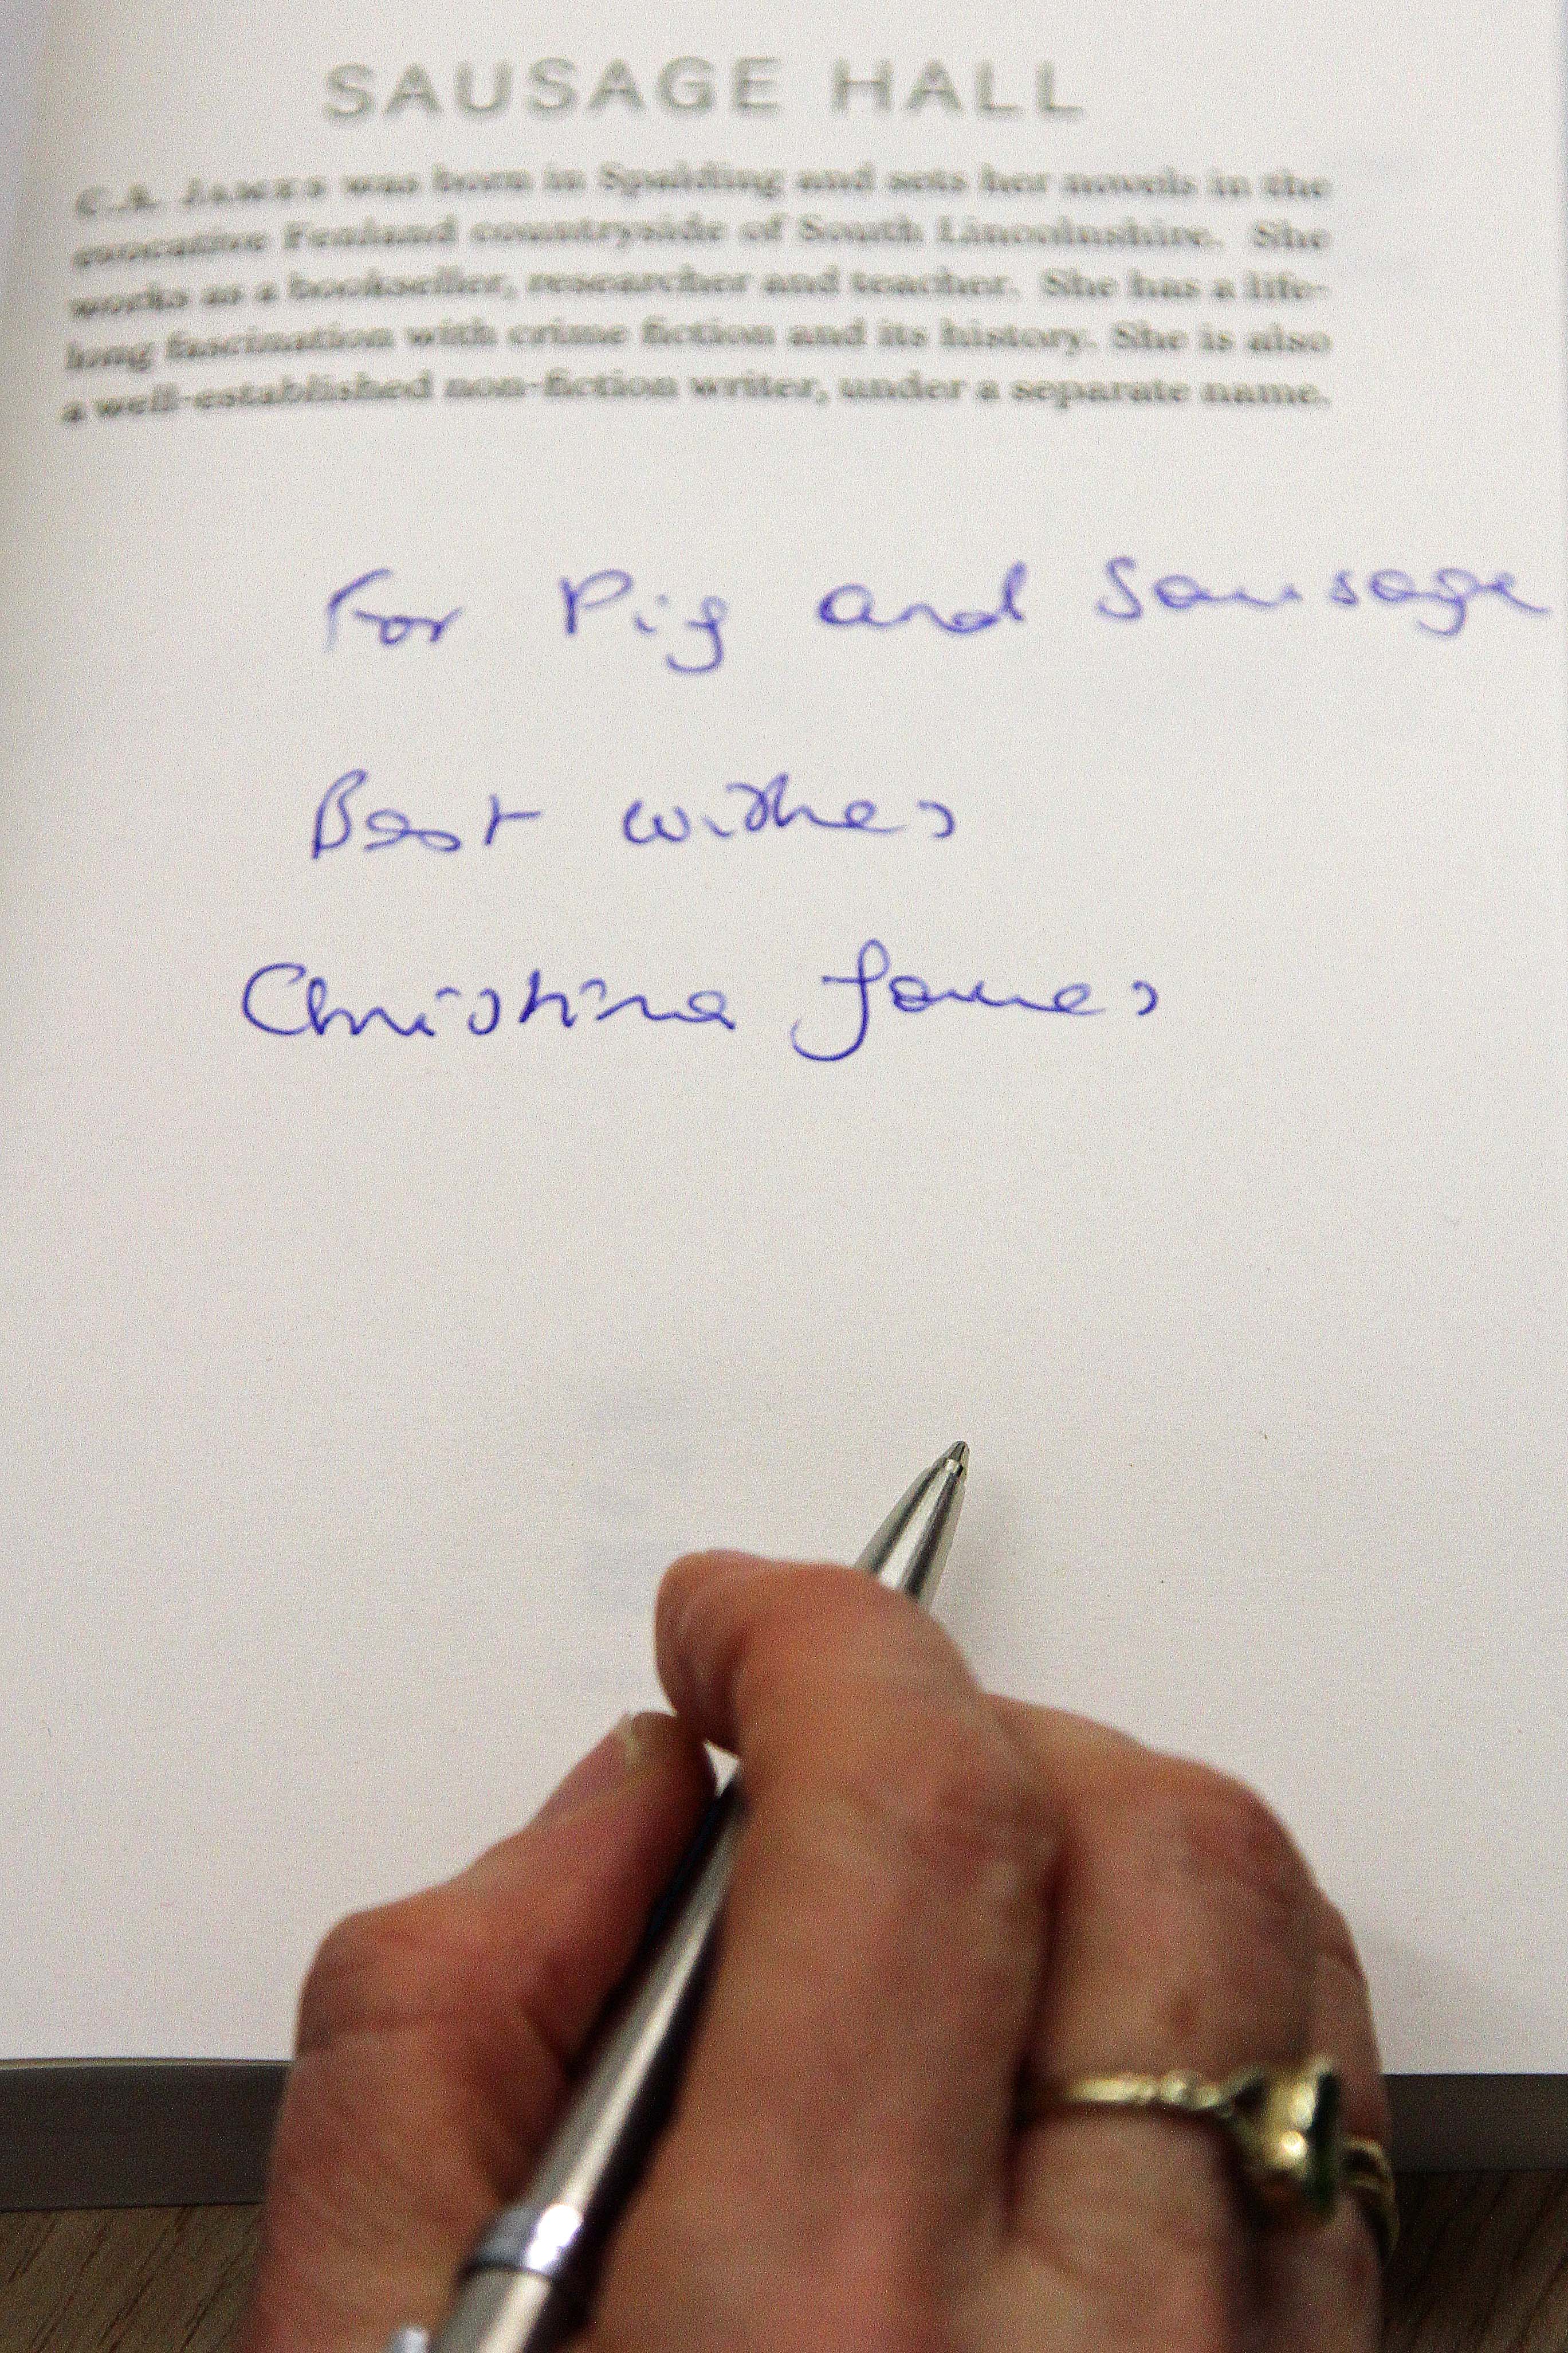 SAUSAGE HALL
C.A. JAMES was born in Spalding and sets her novels in the
evocative Fenland countryside of South Lincolnshire. She
works as a bookseller, researcher and teacher. She has a life-
long fascination with crime fiction and its history. She is also
a well-established non-fiction writer, under a separate name.
For Pig and Sausage
Best wishes
Christina James